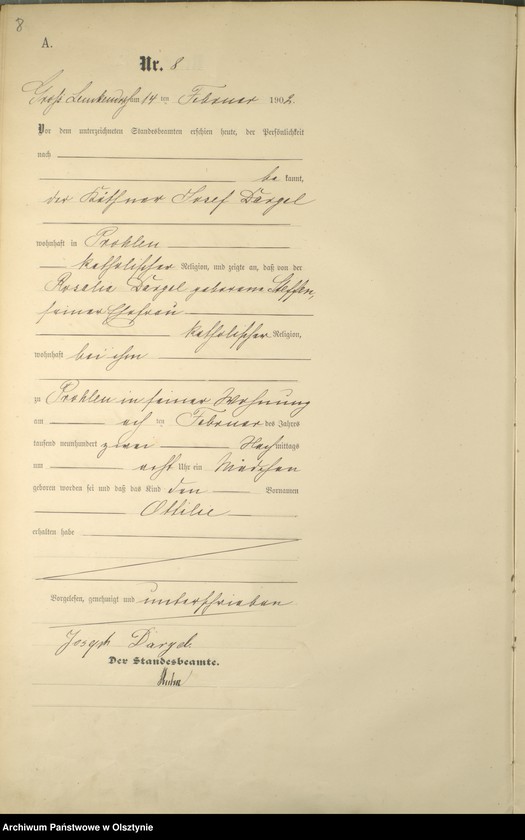 8
A.
Nr. 8
Groß Lemkendorf am 14 ten Februar 1902.
Vor dem unterzeichneten Standesbeamten erschien heute, der Persönlichkeit
nach
be kannt,
der Käthner Josef Dargel
wohnhaft in Prohlen
katholischer Religion, und zeigte an, daß von der
Rosalie Dargel geborene Steffen,
seiner Ehefrau
katholischer Religion,
wohnhaft bei ihm
zu Prohlen in seiner Wohnung
am ten Februar des Jahres
tausend neunhundert zwei Nach mittags
um acht Uhr ein Mädchen
geboren worden sei und daß das Kind den Vornamen
Ottilie
erhalten habe
Vorgelesen, genehmigt und unterschrieben
Joseph Dargel.
Der Standesbeamte.
Archiwum Państwowe w Olsztynie